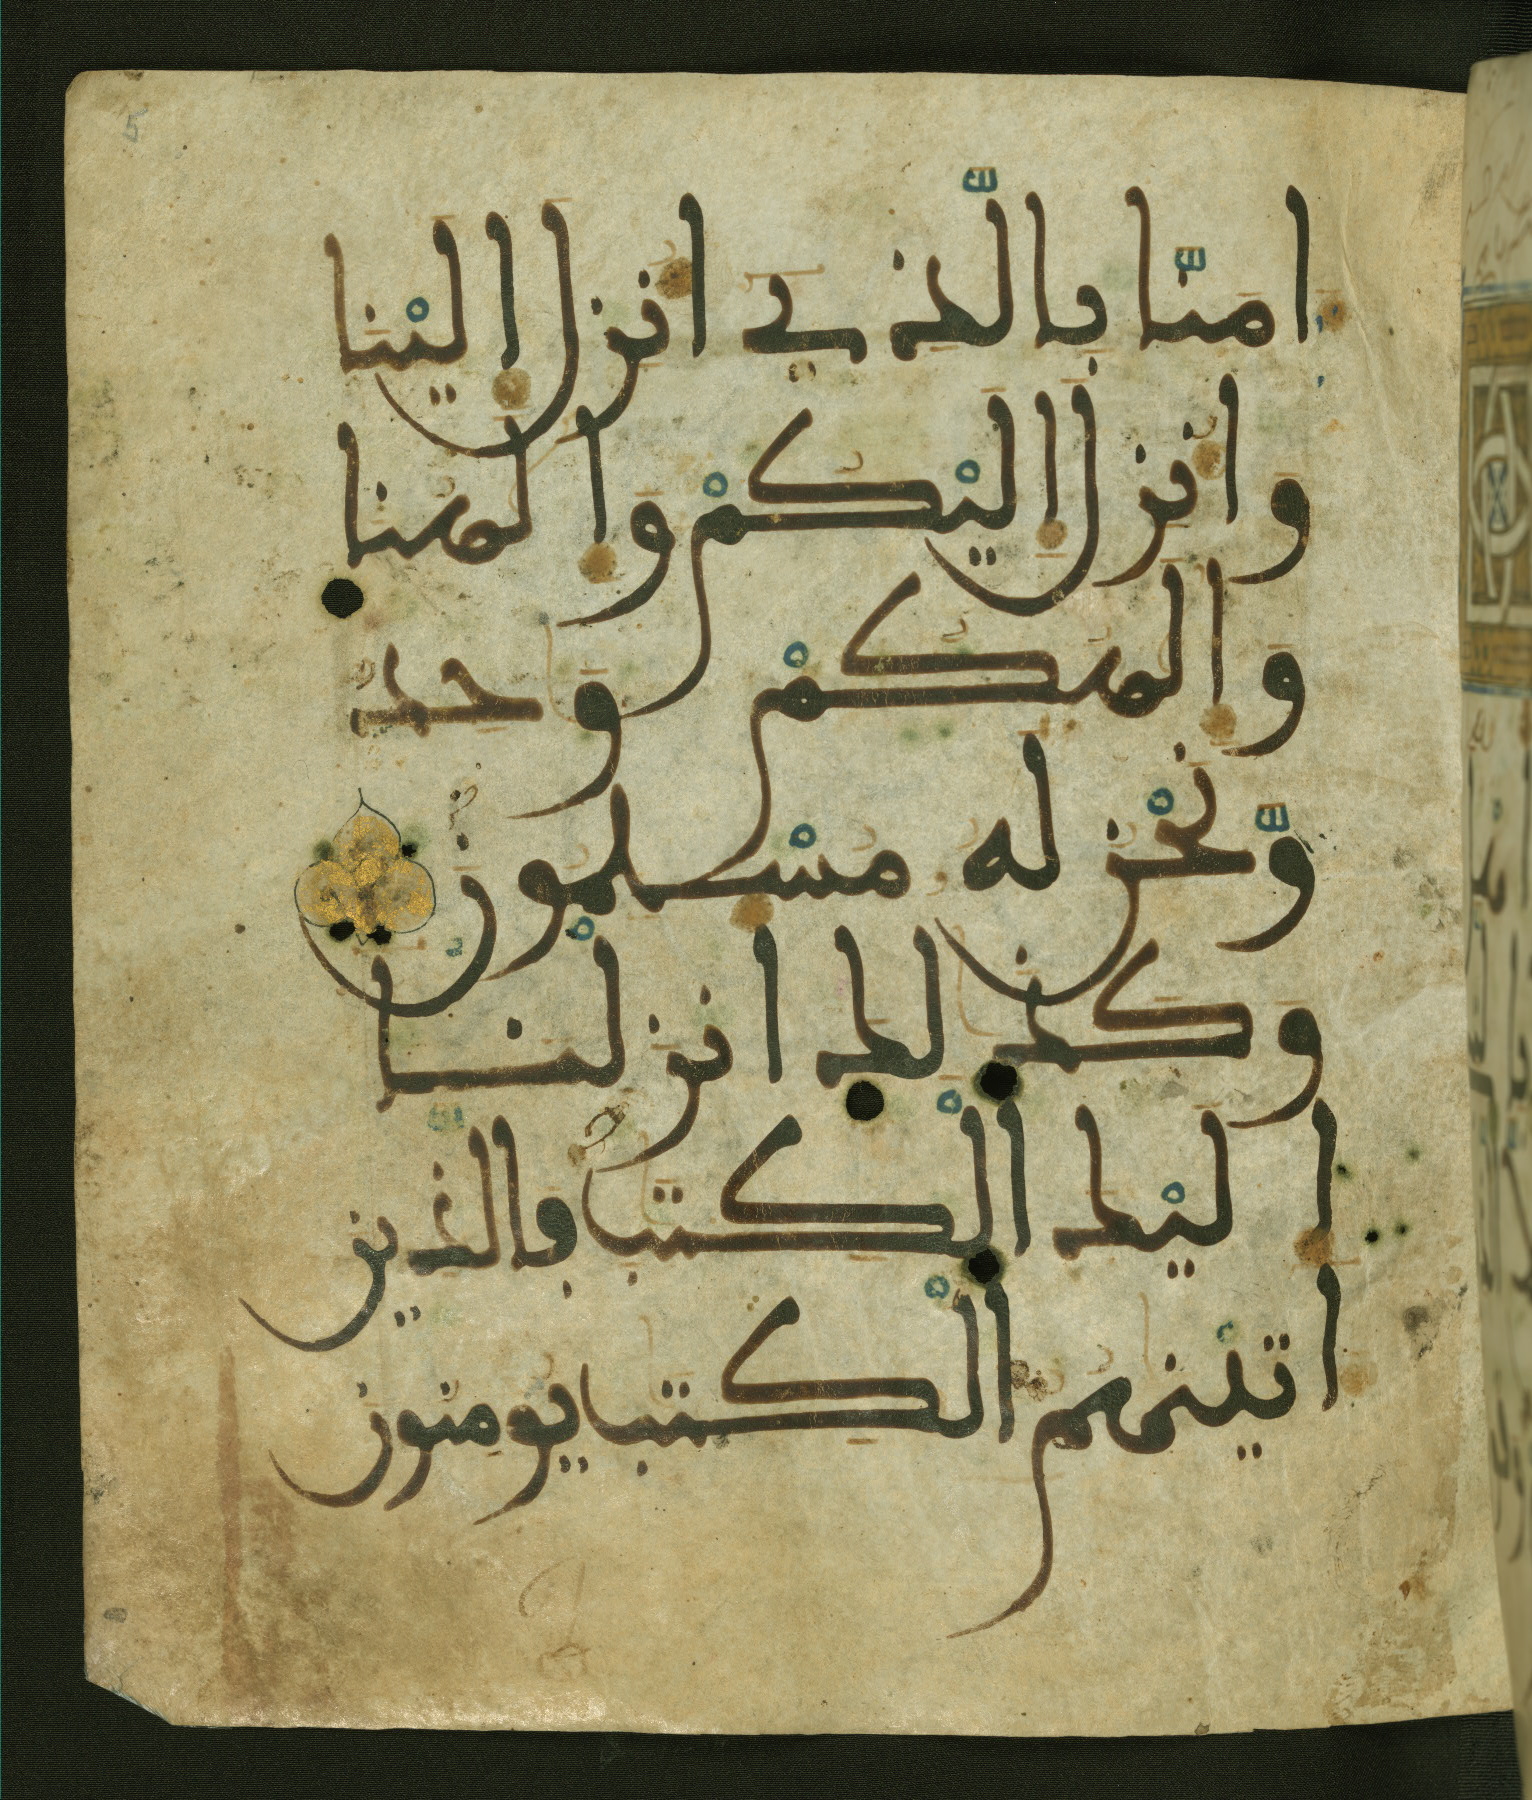 امنّا بالّذي انزل اليْنا
وانزل اليْكمْ والهنا
والهكمْ وحد
ونحْن له مسْلمون
وكذلك انزلنا
اليْك الْكتب فالّذين
اتينهم الْكتب يومنون
5